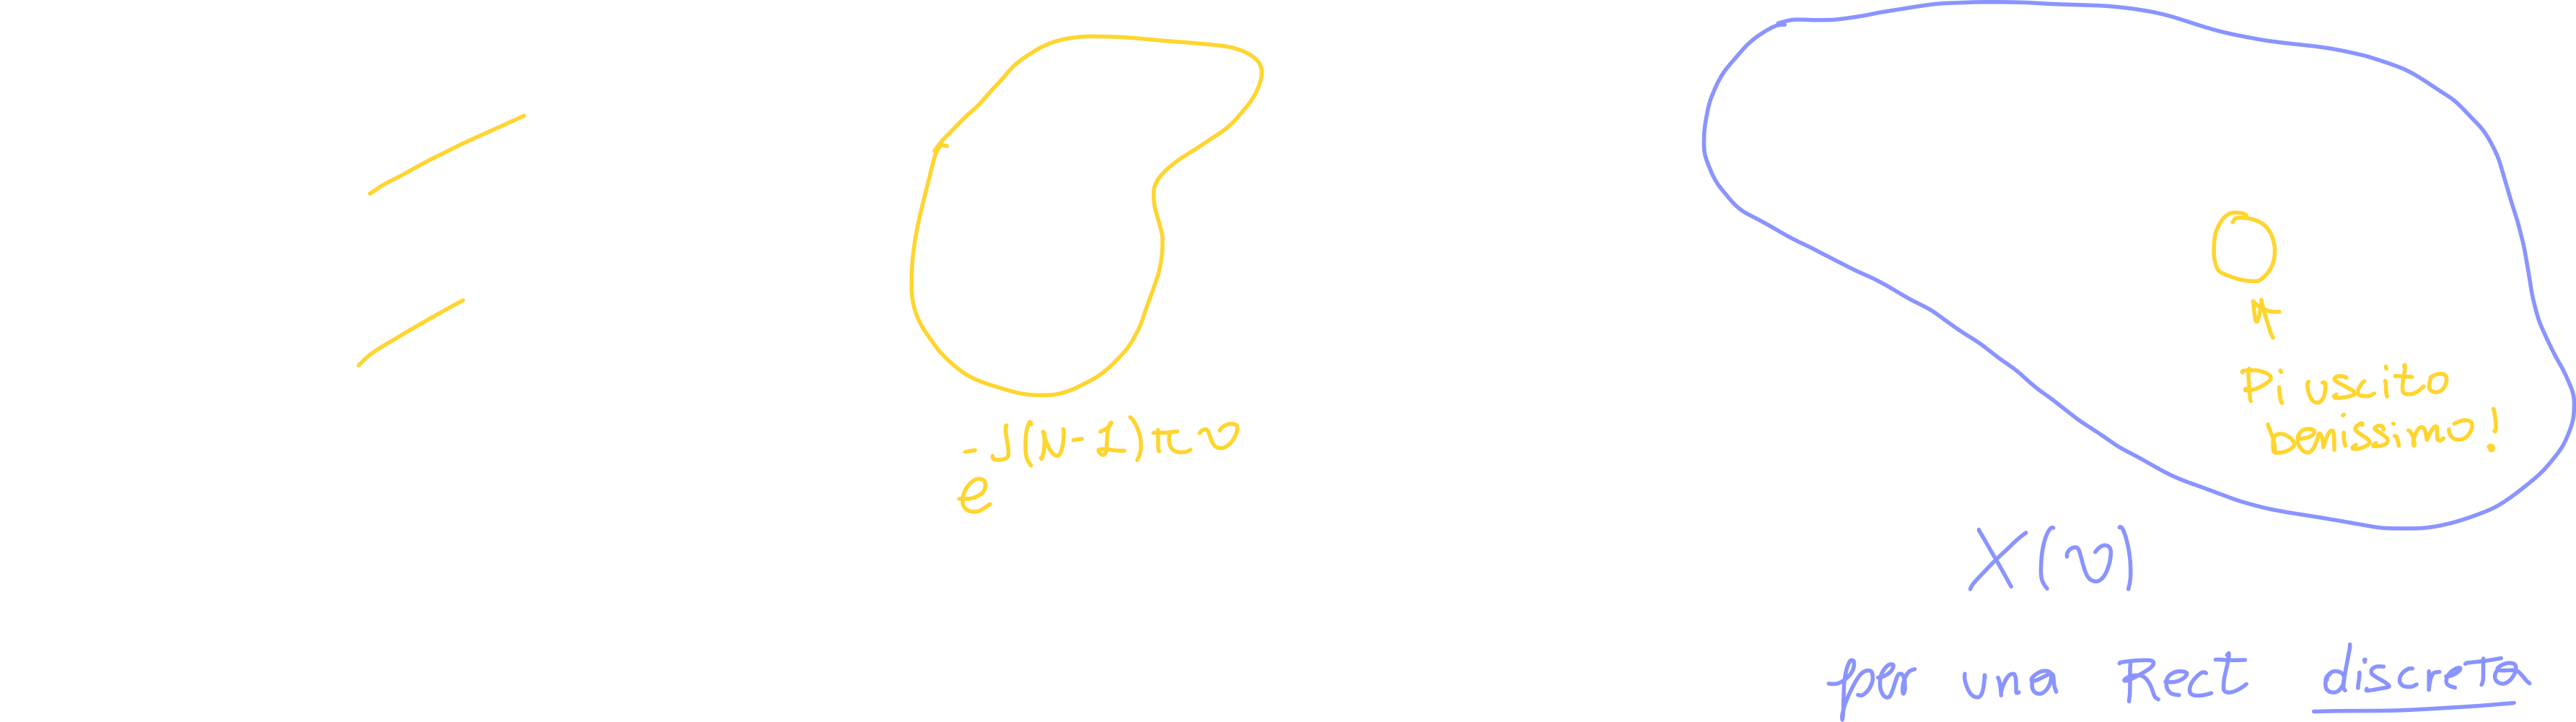 e^{-J(N-1)πν}
Pi uscito
benissimo!
X(ν)
per una Rect discreta